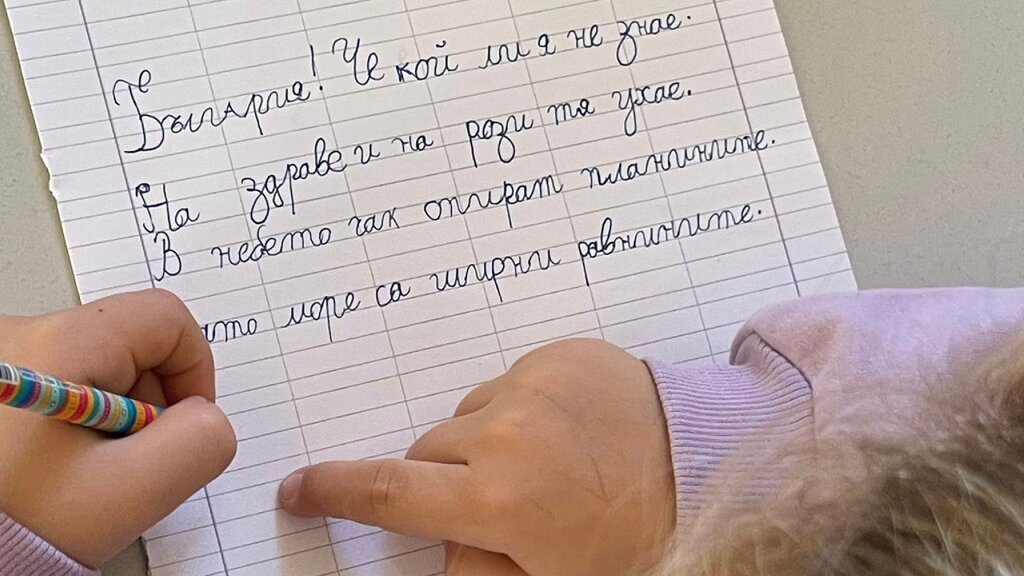 България! Че кой ли я не знае.
На здравец и на рози тя ухае.
В небето чак опират планините.
като море са ширни равнините.